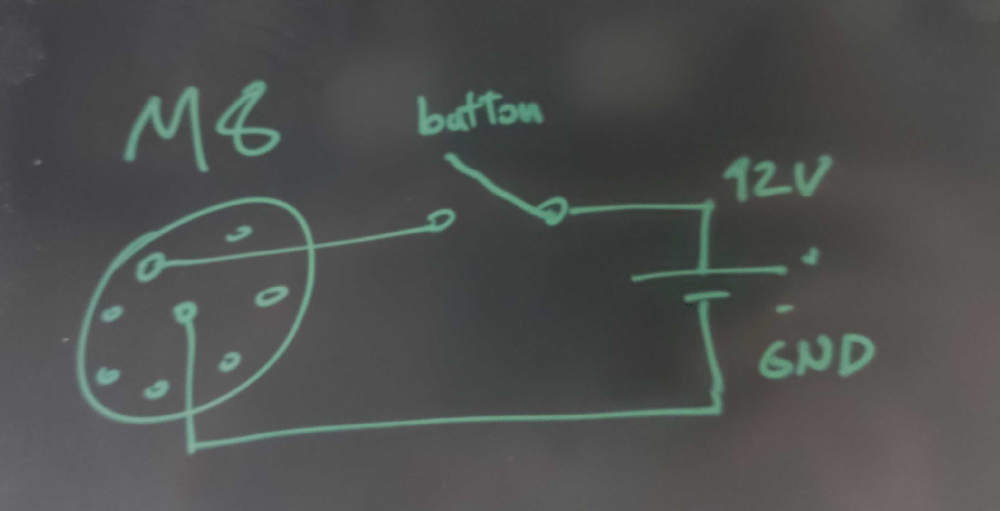 M8
button
12V
+
-
GND